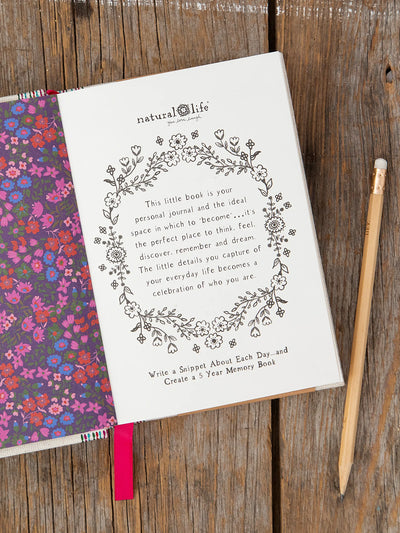 natural life
give love. laugh
This little book is your
personal journal and the ideal
space in which to 'become'...it's
the perfect place to think, feel,
discover, remember and dream.
The little details you capture of
your everyday life becomes a
celebration of who you are.
Write a Snippet About Each Day...and
Create a 5 Year Memory Book